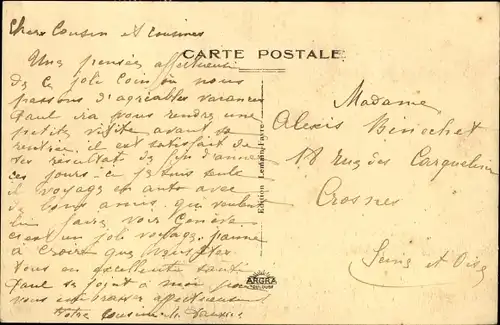 Chers Cousin et Cousines
Une pensée affectueuse
de ce joli coin où nous
passons d'agréables vacances
Paul ira vous rendre une
petite visite avant sa
rentrée. il est satisfait de
ses résultats de fin d'année
ces jours-ci je suis seule
il voyage en auto avec
de bons amis qui veulent
lui faire voir Genève
c'est un joli voyage
à croire que vous êtes
tous en excellente santé
Paul se joint à moi pour
vous embrasser affectueusement
Votre cousine
CARTE POSTALE
Edition Lemain-Favre
ARGRA
Madame
Alexis Binochet
18 rue des
Crosnes
Seine et Oise